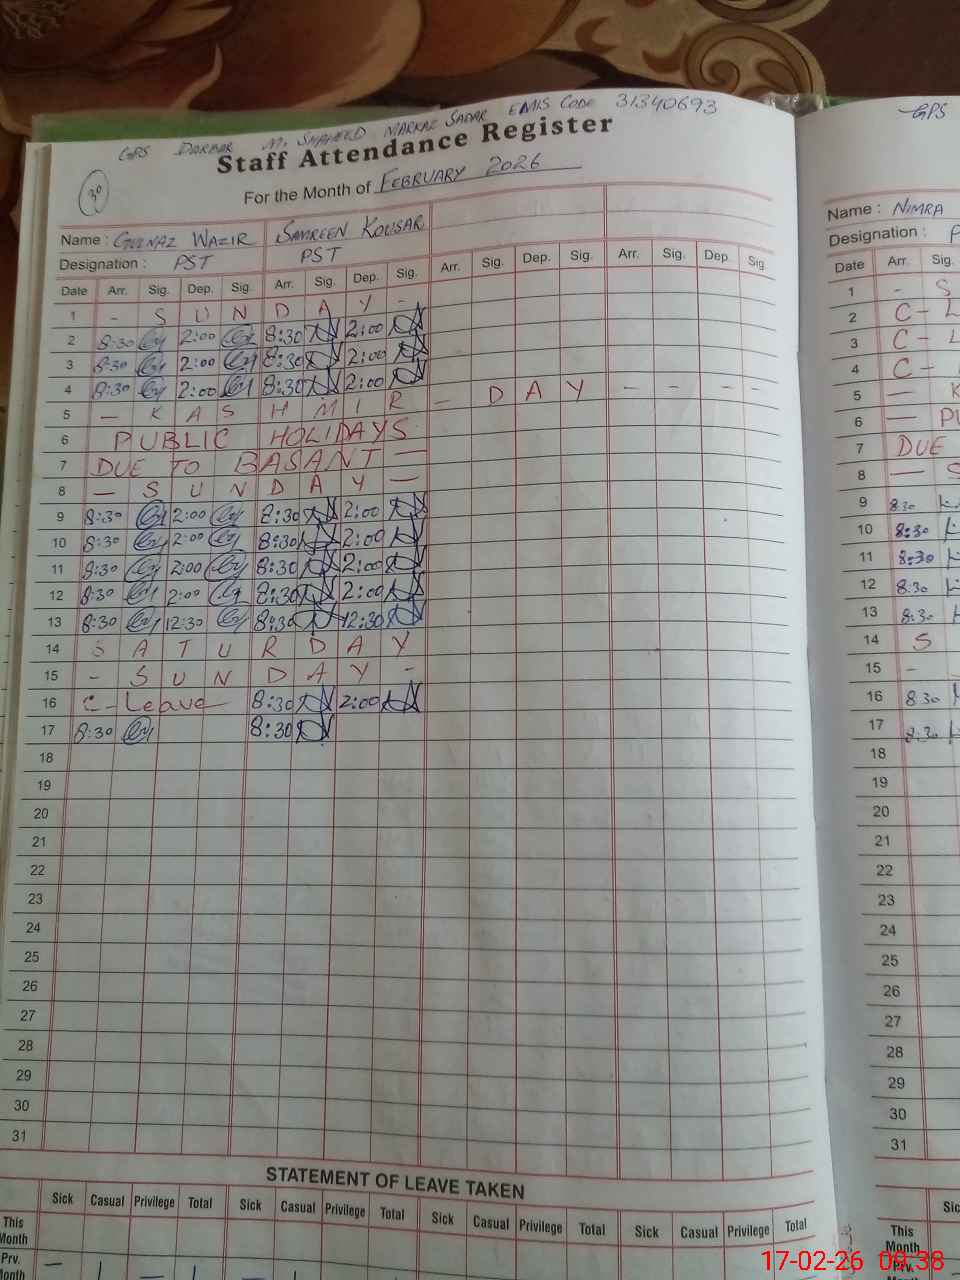 GPS DARBAR M. SHAHEED MARKAZ SADAR EMIS CODE 31340693
Staff Attendance Register
30
For the Month of FEBRUARY 2026
Name : GULNAZ WAZIR SAMREEN KOUSAR
Designation : PST PST
Date Arr. Sig. Dep. Sig. Arr. Sig. Dep. Sig. Arr. Sig. Dep. Sig. Arr. Sig. Dep. Sig.
1 - S U N D A Y -
2 8:30 2:00 8:30 2:00
3 8:30 2:00 8:30 2:00
4 8:30 2:00 8:30 2:00
5 — K A S H M I R - D A Y - - - -
6 PUBLIC HOLIDAYS
7 DUE TO BASANT —
8 — S U N D A Y —
9 8:30 2:00 8:30 2:00
10 8:30 2:00 8:30 2:00
11 8:30 2:00 8:30 2:00
12 8:30 2:00 8:30 2:00
13 8:30 12:30 8:30 12:30
14 S A T U R D A Y
15 - S U N D A Y -
16 C-Leave 8:30 2:00
17 8:30 8:30
18
19
20
21
22
23
24
25
26
27
28
29
30
31
STATEMENT OF LEAVE TAKEN
Sick Casual Privilege Total Sick Casual Privilege Total Sick Casual Privilege Total Sick Casual Privilege Total
This Month
Prv. Month
GPS
Name : NIMRA
Designation : P
Date Arr. Sig.
1 - S
2 C - L
3 C - L
4 C -
5 — K
6 — PU
7 DUE
8 — S
9 8:30
10 8:30
11 8:30
12 8:30
13 8:30
14 S
15 -
16 8:30
17 8:30
18
19
20
21
22
23
24
25
26
27
28
29
30
31
Sic
This Month
Prv. Month
17-02-26 09:38